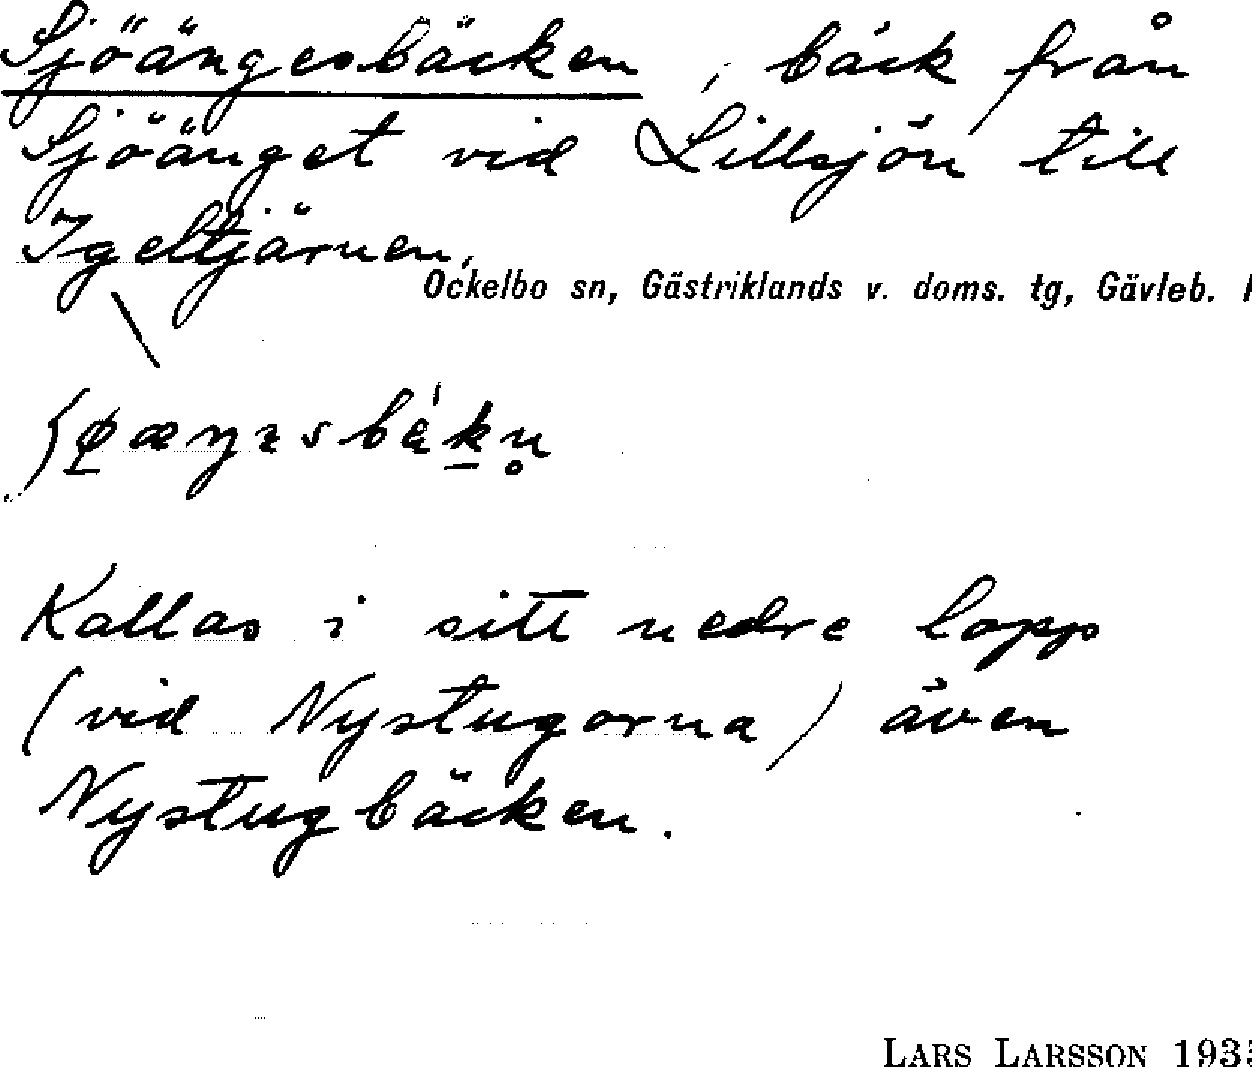 Sjöängesbäcken, bäck från
Sjöänget vid Lillsjön till
Igeltjärnen.
Ockelbo sn, Gästriklands v. doms. tg, Gävleb.
Kallas i sitt nedre lopp
(vid Nystugorna) även
Nystugbäcken.
LARS LARSSON 193